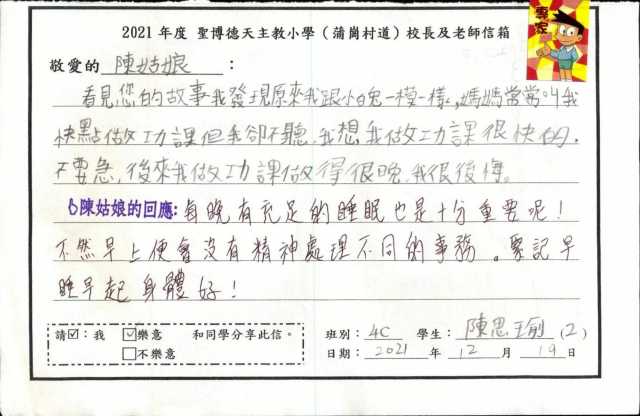 2021 年度 聖博德天主教小學(蒲崗村道)校長及老師信箱
專家
敬愛的 陳姑娘 :
看見您的故事我發現原來我跟小白兔一模一樣,媽媽常常叫我
快點做功課但我卻不聽,我想我做功課很快的,
不要急,後來我做功課做得很晚,我很後悔。
陳姑娘的回應:每晚有充足的睡眠也是十分重要呢!
不然早上便會沒有精神處理不同的事務。要記早
睡早起身體好!
請☑:我 ☑樂意 和同學分享此信。
□不樂意
班別: 4C 學生: 陳思瑜 (2)
日期: 2021 年 12 月 19 日